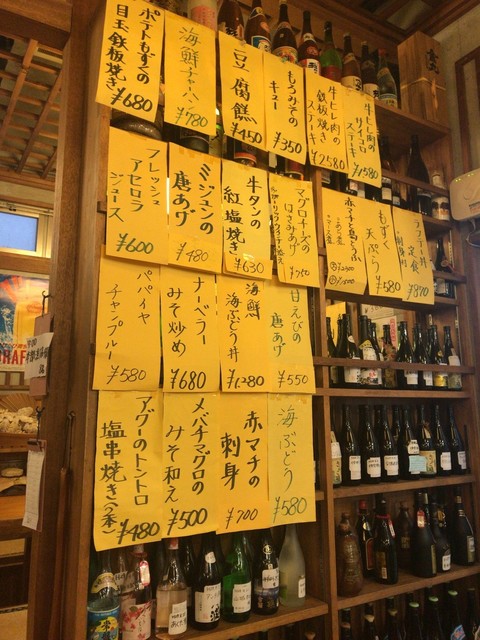 ポテトもずくの
目玉鉄板焼き
¥680
海鮮チャーハン
¥780
豆腐餻
¥450
もろみその
キュー
¥350
牛ヒレ肉の
鉄板焼き
ステーキ
¥2580
牛ヒレ肉の
サイコロ
ステーキ
¥1580
フレッシュ
アセロラ
ジュース
¥600
ミジュンの
唐あげ
¥480
牛タンの
紅塩焼き
¥630
マグロチーズの
はさみあげ
¥750
もずく
天ぷら
¥580
定食
¥870
パパイヤ
チャンプルー
¥580
ナーベラー
みそ炒め
¥680
海鮮
海ぶどう丼
¥1,280
甘えびの
唐あげ
¥550
アグーのトントロ
塩串焼き(2本)
¥480
メバチマグロの
みそ和え
¥500
赤マチの
刺身
¥700
海ぶどう
¥580